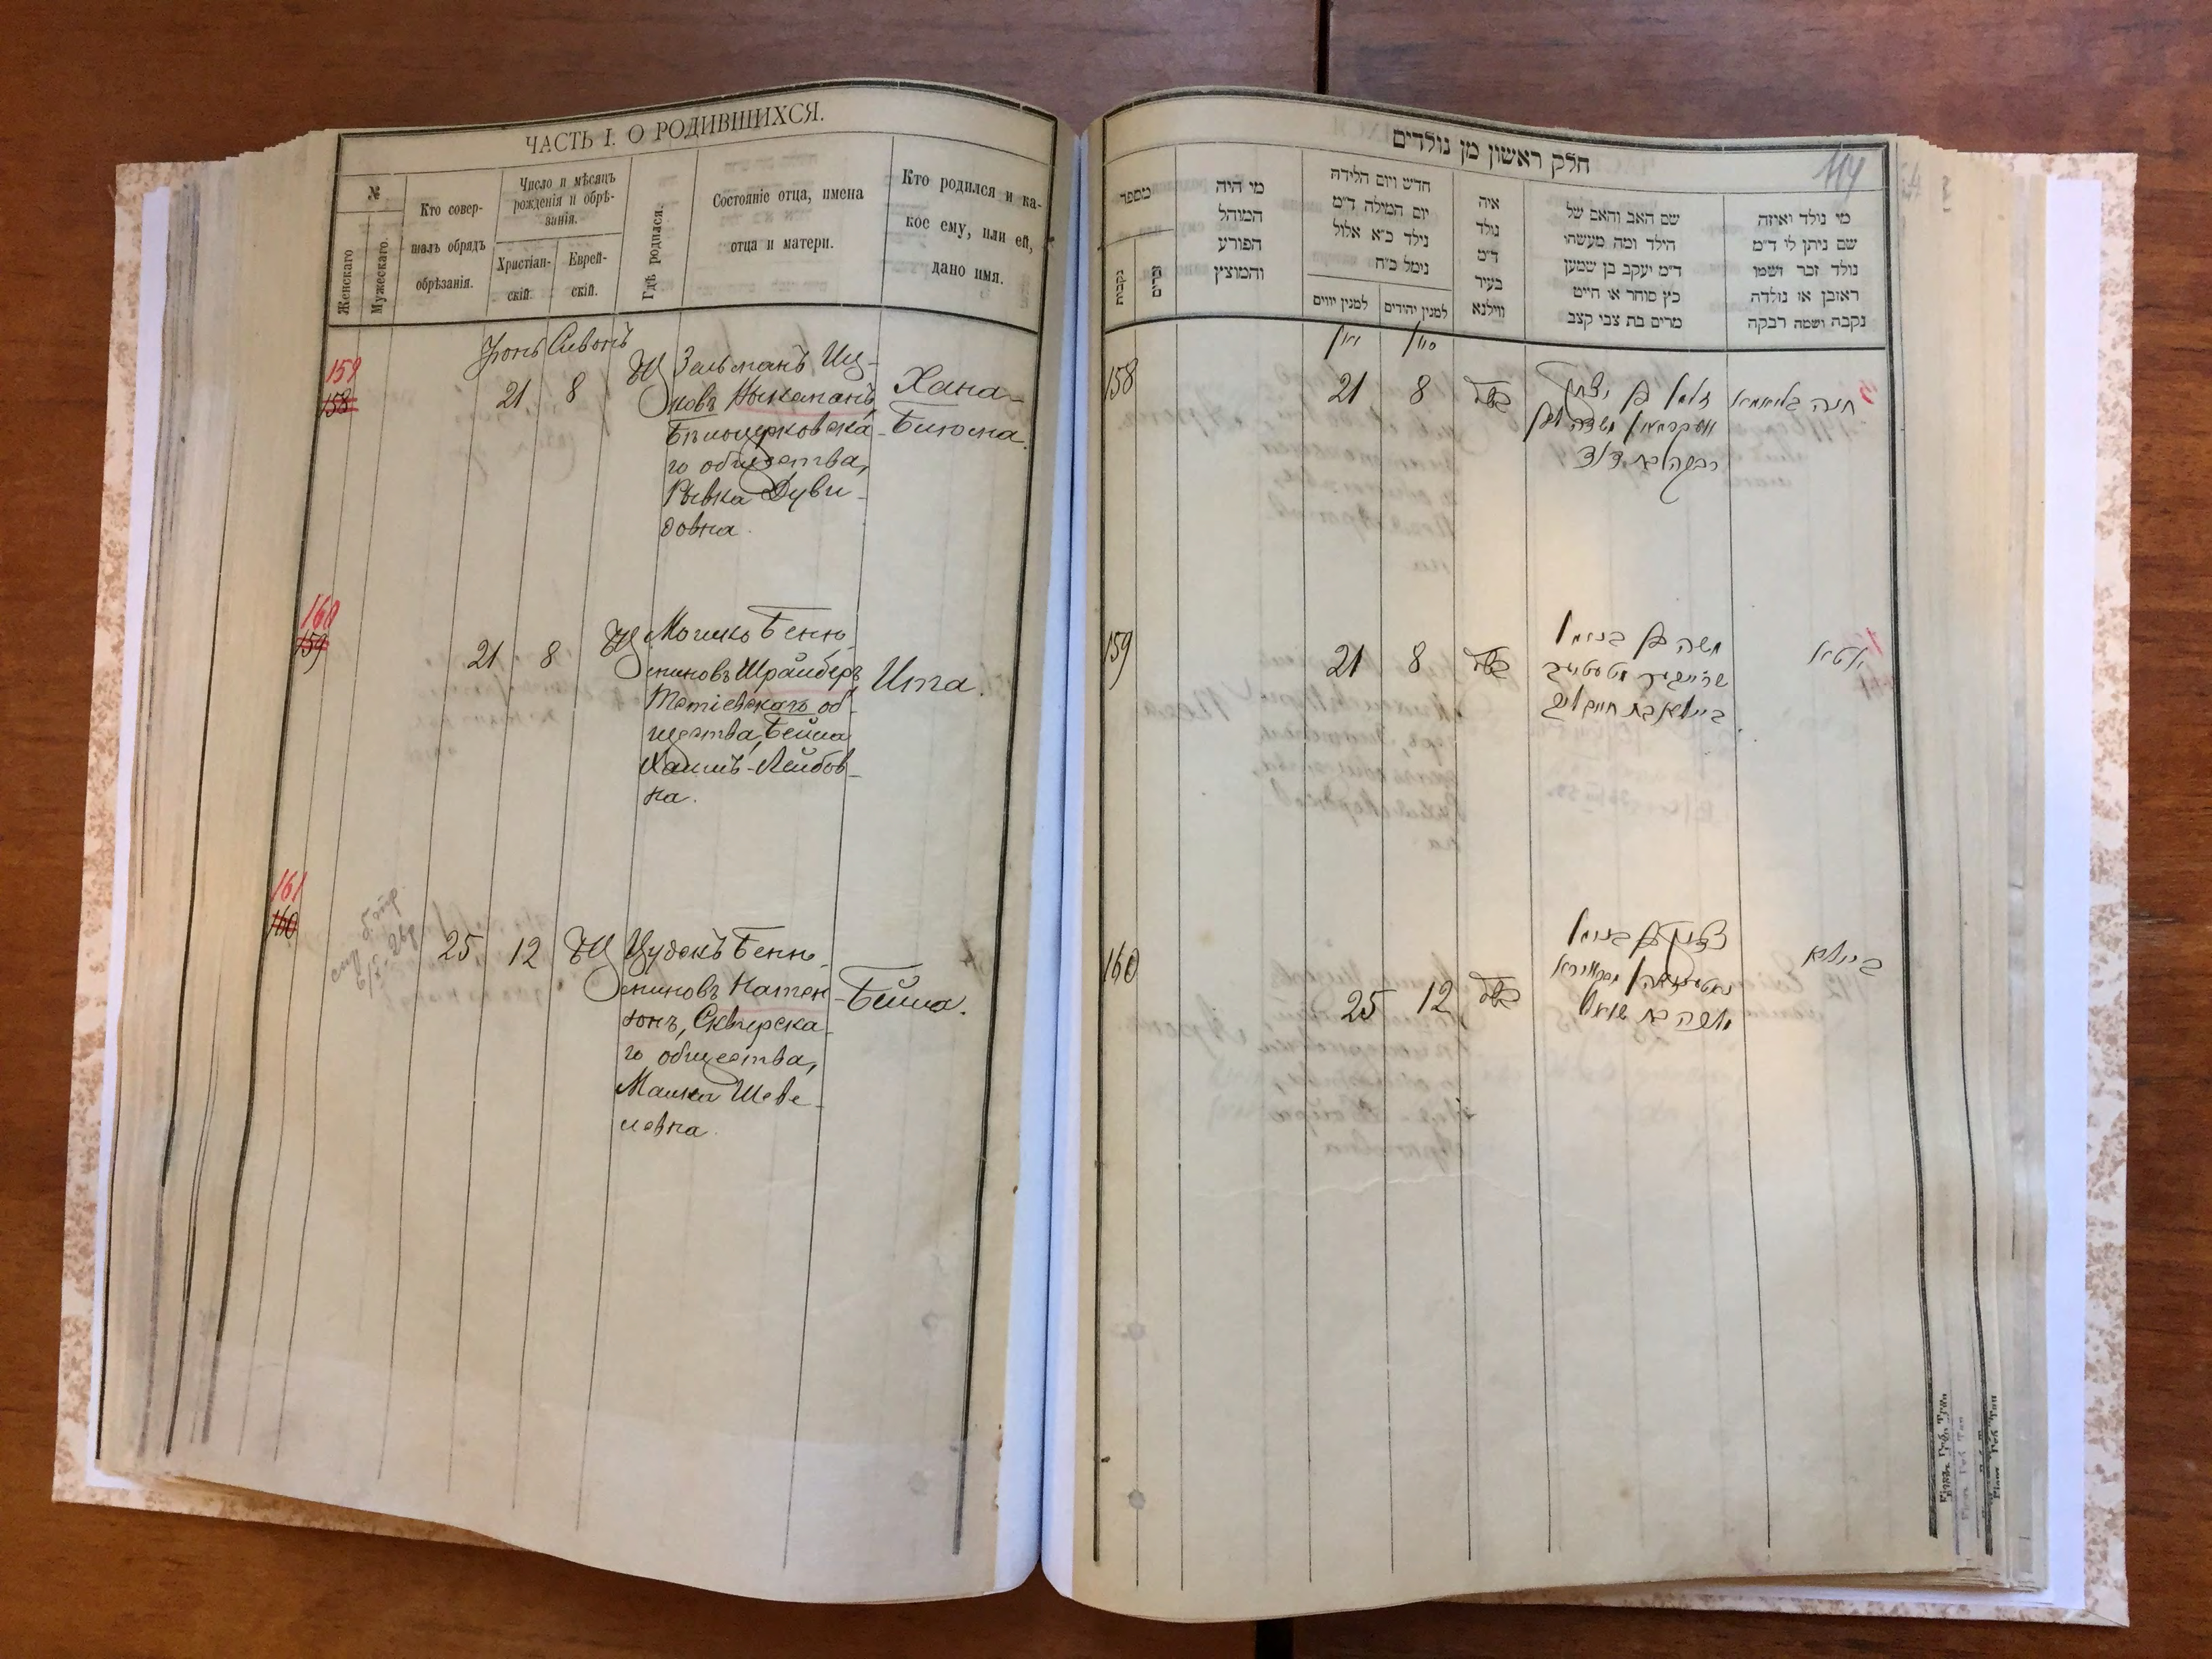 ЧАСТЬ I. О РОДИВШИХСЯ.
№
Женскаго
Мужескаго.
Кто совер-
шалъ обрядъ
обрѣзанія.
Число и мѣсяцъ
рожденія и обрѣ-
занія.
Христіан-
скій.
Еврей-
скій.
Гдѣ родился.
Состояніе отца, имена
отца и матери.
Кто родился и ка-
кое ему, или ей,
дано имя.
Іюнь Сивонъ
159
158
21 8
Зельманъ Иц-
ковъ
Бѣлоцерковска-
го общества,
Рывка Дуви-
довна.
Хана-
Блюма.
160
159
21 8
Мошко Беню-
миновъ Шрайберъ
Тетіевскаго об-
щества, Бейла
Хаимъ-Лейбов-
на.
Ита.
161
160
25 12
Цудокъ Беню-
миновъ Натен-
зонъ, Сквирска-
го общества,
Малка Шеве-
левна.
Бейла.
חלק ראשון מן נולדים
114
מספר
נקבות
זכרים
מי היה
המוהל
הפורע
והמוצץ
חדש ויום הלידה
יום המילה ד״מ
נילד כ״א אלול
נימל כ״ח
למנין יווים
למנין יהודים
איה
נולד
ד״מ
בעיר
ווילנא
שם האב והאם של
הילד ומה מעשהו
ד״מ יעקב בן שמען
כץ סוחר או חייט
מרים בת צבי קצב
מי נולד ואיזה
שם ניתן לו ד״מ
נולד זכר ושמו
ראובן או נולדה
נקבה ושמה רבקה
יוני סיון
158
21 8
זלמן בן יצחק
רבקה בת דוד
חנה בלומא
159
21 8
משה בן בנימן
שרייבער טעטיוב
ביילא בת חיים ליב
איטא
160
25 12
צדוק בן בנימן
מלכה בת שואל
ביילא